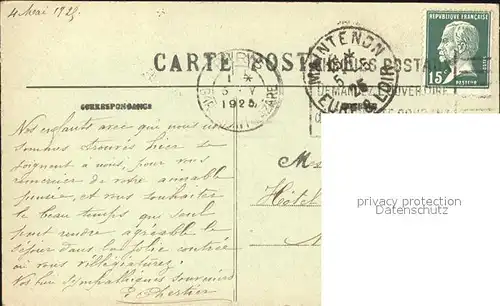 4 Mai 1925.
REPUBLIQUE FRANÇAISE
POSTES
15c
PASTEUR
CARTE POSTALE
MAINTENON
EURE-&-LOIR
5
25
CHEQUES POSTAUX
DEMANDEZ L'OUVERTURE
1925
CORRESPONDANCE
Nos enfants avec que nous nous
sommes trouvés hier se
joignent à nous, pour vous
remercier de votre aimable
pensée, et vous souhaiter
le beau temps qui seul
peut rendre agréable le
séjour dans la jolie contrée
où vous villégiaturez.
Nos bien sympathiques souvenirs
Hôtel
privacy protection
Datenschutz